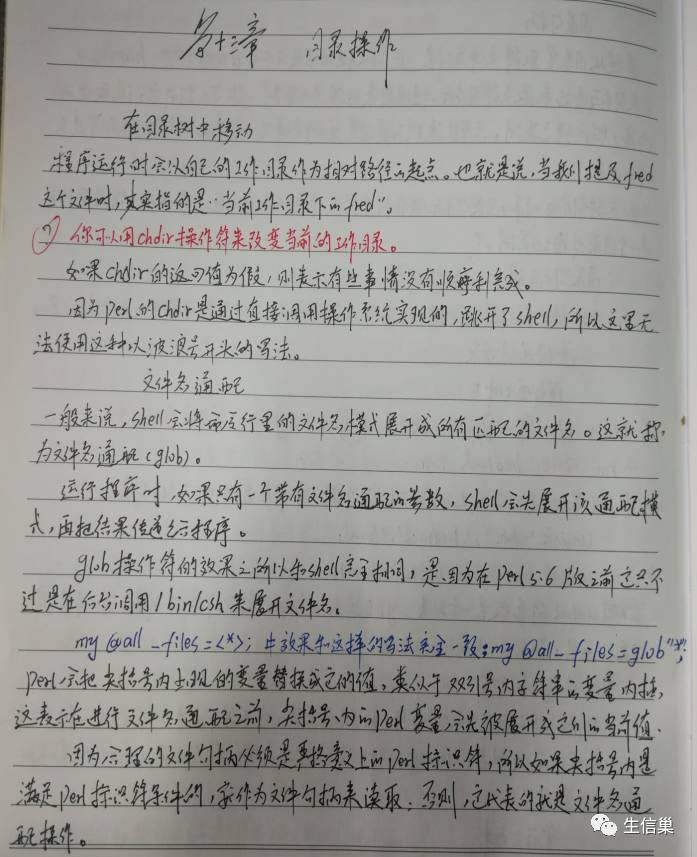 第十三章 目录操作
在目录树中移动
程序运行时会以自己的工作目录作为相对路径的起点。也就是说,当我们提及fred
这个文件时,其实指的是"当前工作目录下的fred"。
你可以用chdir操作符来改变当前的工作目录。
如果chdir的返回值为假,则表示有些事情没有顺利完成。
因为perl的chdir是通过直接调用操作系统实现的,跳开了shell,所以这里无
法使用这种以波浪号开头的写法。
文件名通配
一般来说,shell会将命令行里的文件名模式展开成所有匹配的文件名。这就称
为文件名通配(glob)。
运行程序时,如果只有一个带有文件名通配的参数,shell会先展开该通配模
式,再把结果传递给程序。
glob操作符的效果之所以和shell完全相同,是因为在perl 5.6版之前它只不
过是在后台调用/bin/csh来展开文件名。
my @all_files=<*>; #效果和这样的写法完全一致:my @all_files=glob"*";
perl会把尖括号内出现的变量替换成它的值,类似于双引号内字符串的变量内插,
这表示在进行文件名通配之前,尖括号内的Perl变量会先被展开成它们的当前值.
因为合理的文件句柄必须是严格意义上的Perl标识符,所以如果尖括号内是
满足Perl标识符条件的,就作为文件句柄来读取;否则,它代表的就是文件名通
配操作。
生信巢